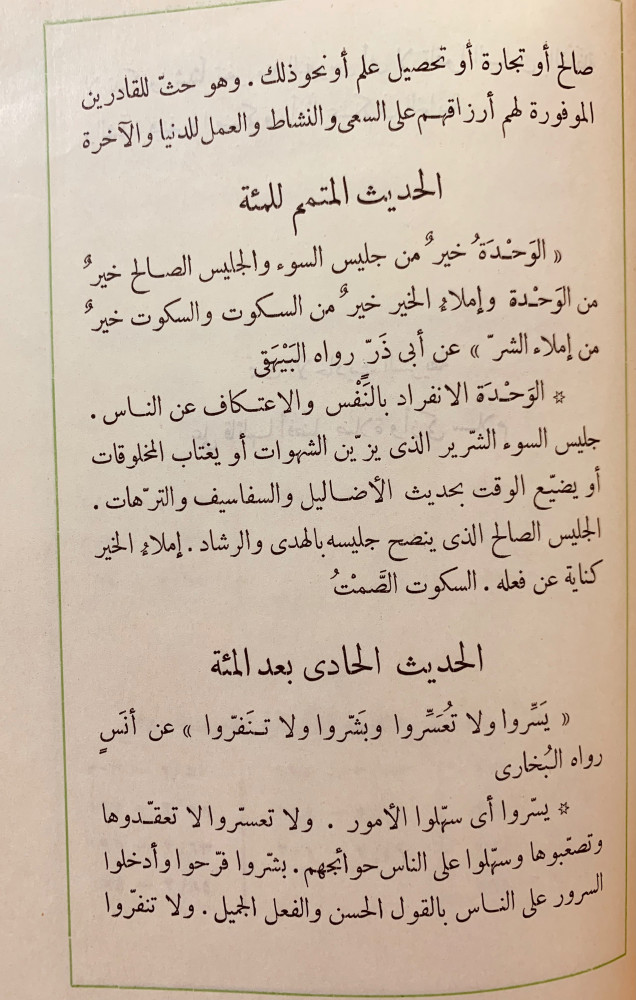 صالح أو تجارة أو تحصيل علم أو نحو ذلك . وهو حثّ للقادرين
الموفورة لهم أرزاقهم على السعى والنشاط والعمل للدنيا والآخرة
الحديث المتمم للمئة
« الوَحْدَةُ خيرٌ من جليس السوء والجليس الصالح خيرٌ
من الوَحْدة وإملاءُ الخير خيرٌ من السكوت والسكوت خيرٌ
من إملاء الشرّ » عن أبى ذَرّ رواه البَيْهَقى
* الوَحْدَة الانفراد بالنَّفْس والاعتكاف عن الناس .
جليس السوء الشّرير الذى يزيّن الشهوات أو يغتاب المخلوقات
أو يضيّع الوقت بحديث الأضاليل والسفاسيف والترّهات .
الجليس الصالح الذى ينصح جليسه بالهدى والرشاد . إملاءُ الخير
كناية عن فعله . السكوت الصَّمتْ
الحديث الحادى بعد المئة
« يَسِّروا ولا تُعَسِّروا وبَشّروا ولا تنَفرّوا » عن أنَسٍ
رواه البُخارى
* يسّروا أى سهّلوا الأمور . ولا تعسّروا لا تعقّدوها
وتصعّبوها وسهّلوا على الناس حوائجهم . بشّروا فرّحوا وأدخلوا
السرور على الناس بالقول الحسن والفعل الجميل . ولا تنفرّوا